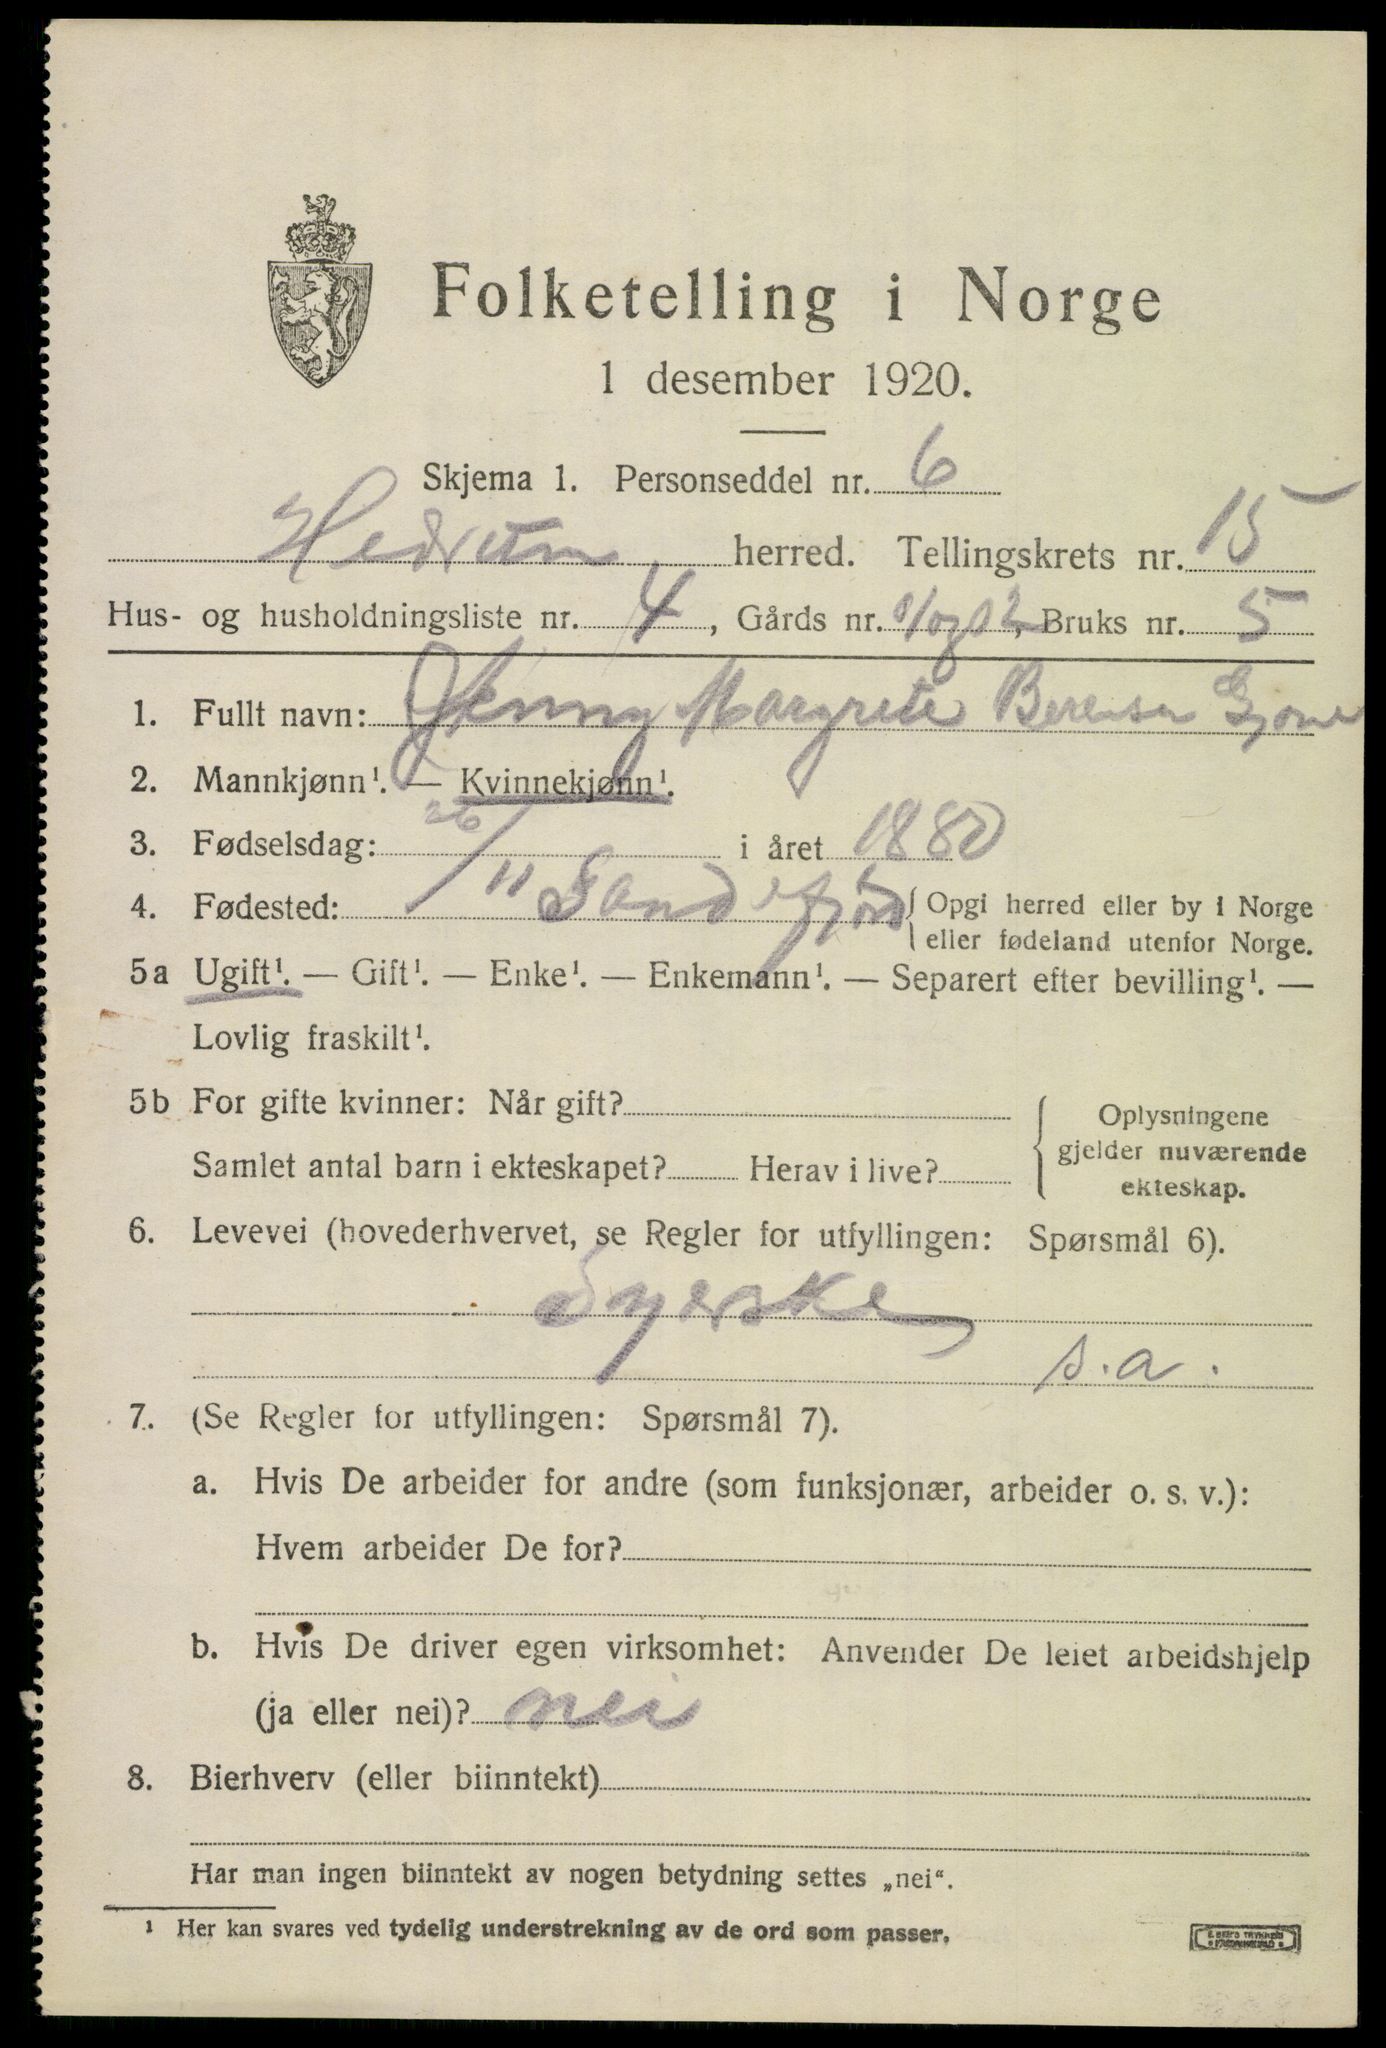 Folketelling i Norge
1 desember 1920.
Skjema 1. Personseddel nr. 6
Hedrum herred. Tellingskrets nr. 15
Hus- og husholdningsliste nr. 4, Gårds nr. Bruks nr. 5
1. Fullt navn: Jenny Margrete Berensen
2. Mannkjønn¹. — Kvinnekjønn¹.
3. Fødselsdag: 26/11 i året 1880
4. Fødested: Sandefjord { Opgi herred eller by i Norge
eller fødeland utenfor Norge.
5a Ugift¹. — Gift¹. — Enke¹. — Enkemann¹. — Separert efter bevilling¹. —
Lovlig fraskilt¹.
5b For gifte kvinner: Når gift?
Samlet antal barn i ekteskapet? Herav i live?
{ Oplysningene
gjelder nuværende
ekteskap.
6. Levevei (hovederhvervet, se Regler for utfyllingen: Spørsmål 6).
Syerske
s.a.
7. (Se Regler for utfyllingen: Spørsmål 7).
a. Hvis De arbeider for andre (som funksjonær, arbeider o. s. v.):
Hvem arbeider De for?
b. Hvis De driver egen virksomhet: Anvender De leiet arbeidshjelp
(ja eller nei)? nei
8. Bierhverv (eller biinntekt)
Har man ingen biinntekt av nogen betydning settes „nei“.
¹ Her kan svares ved tydelig understrekning av de ord som passer.